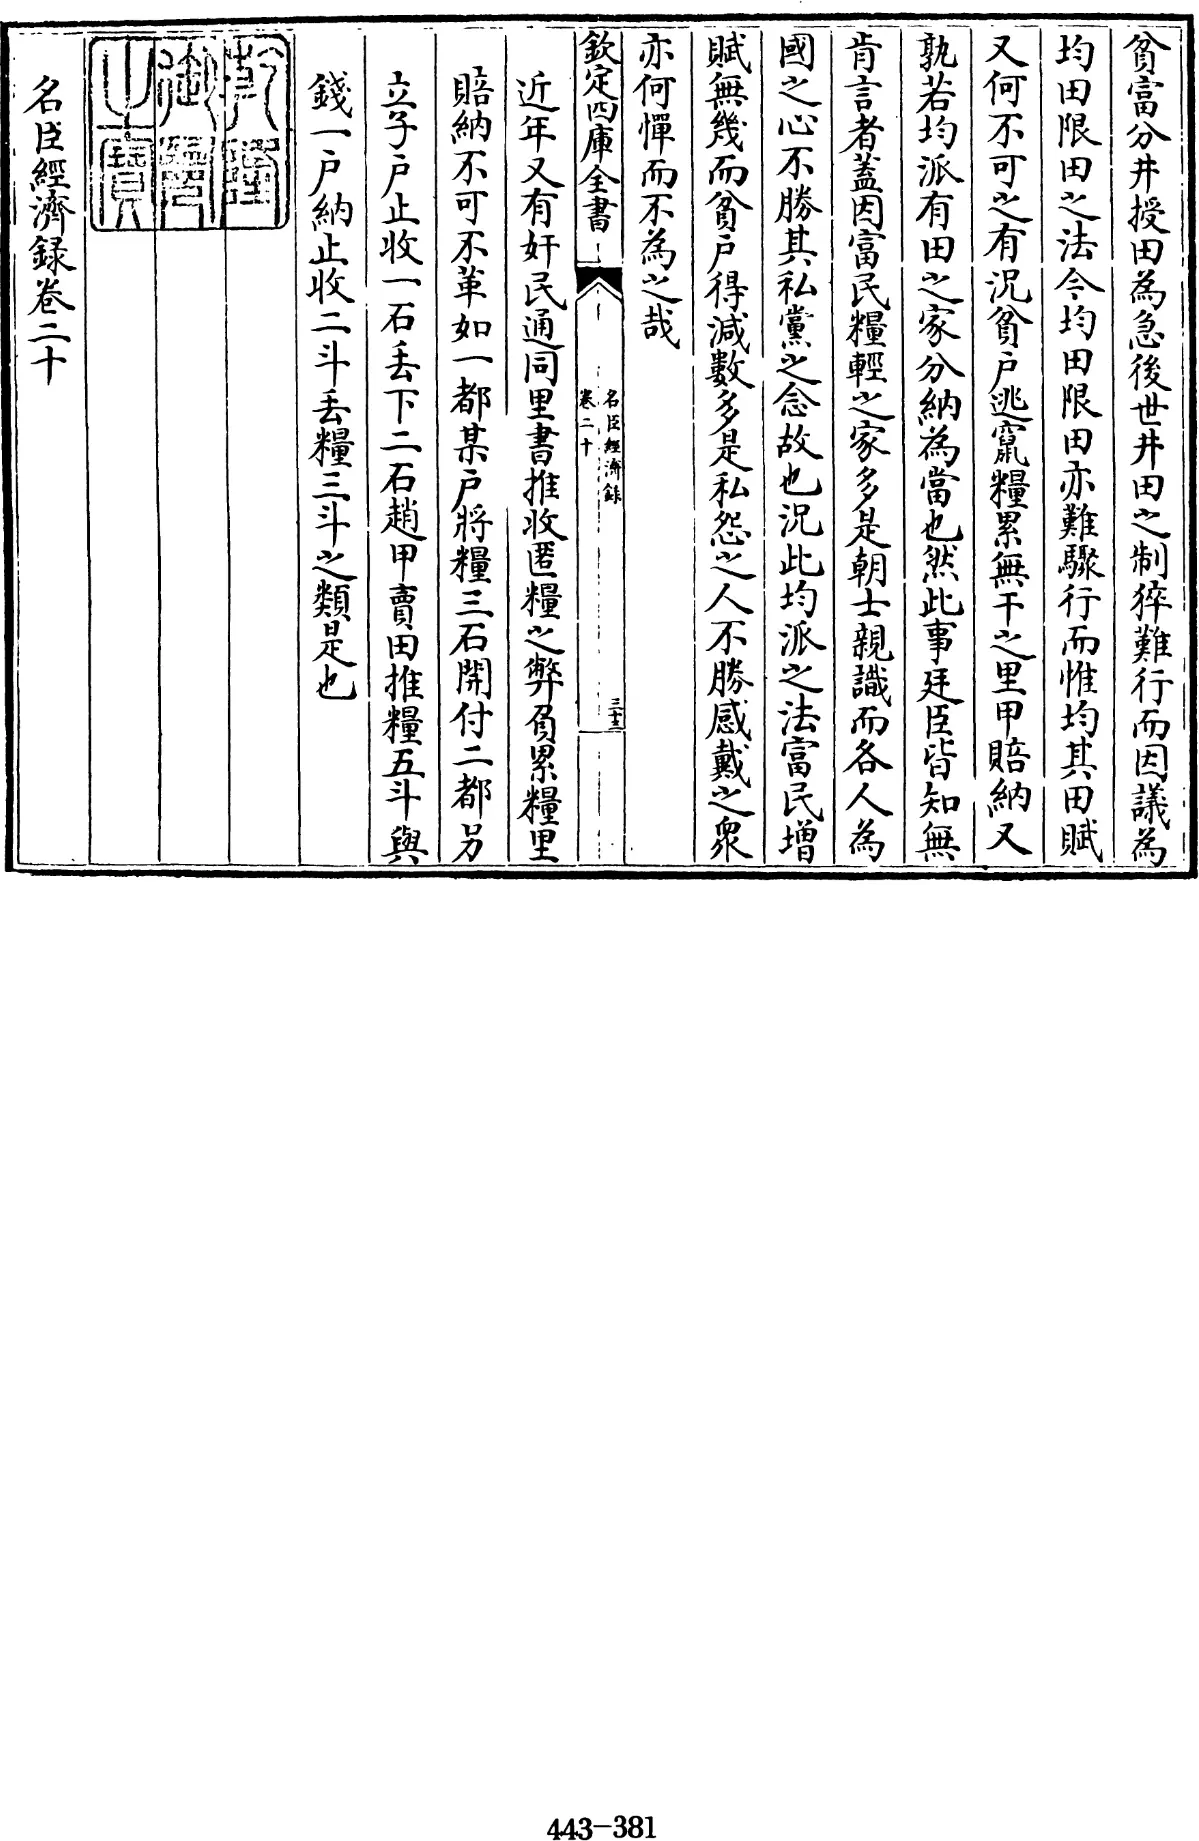 貧富分井授田為急後世井田之制猝難行而因議為
均田限田之法今均田限田亦難驟行而惟均其田賦
又何不可之有況貧戶逃竄糧累無干之里甲賠納又
孰若均派有田之家分納為當也然此事廷臣皆知無
肯言者蓋因富民糧輕之家多是朝士親識而各人為
國之心不勝其私黨之念故也況此均派之法富民增
賦無幾而貧戶得減數多是私怨之人不勝感戴之衆
亦何憚而不為之哉
欽定四庫全書
名臣經濟錄
卷二十
三十三
近年又有奸民通同里書推收匿糧之弊負累糧里
賠納不可不革如一都某戶將糧三石開付二都另
立子戶止收一石丢下二石趙甲賣田推糧五斗與
錢一戶納止收二斗丢糧三斗之類是也
乾隆
御覽
之寶
名臣經濟録卷二十
443-381